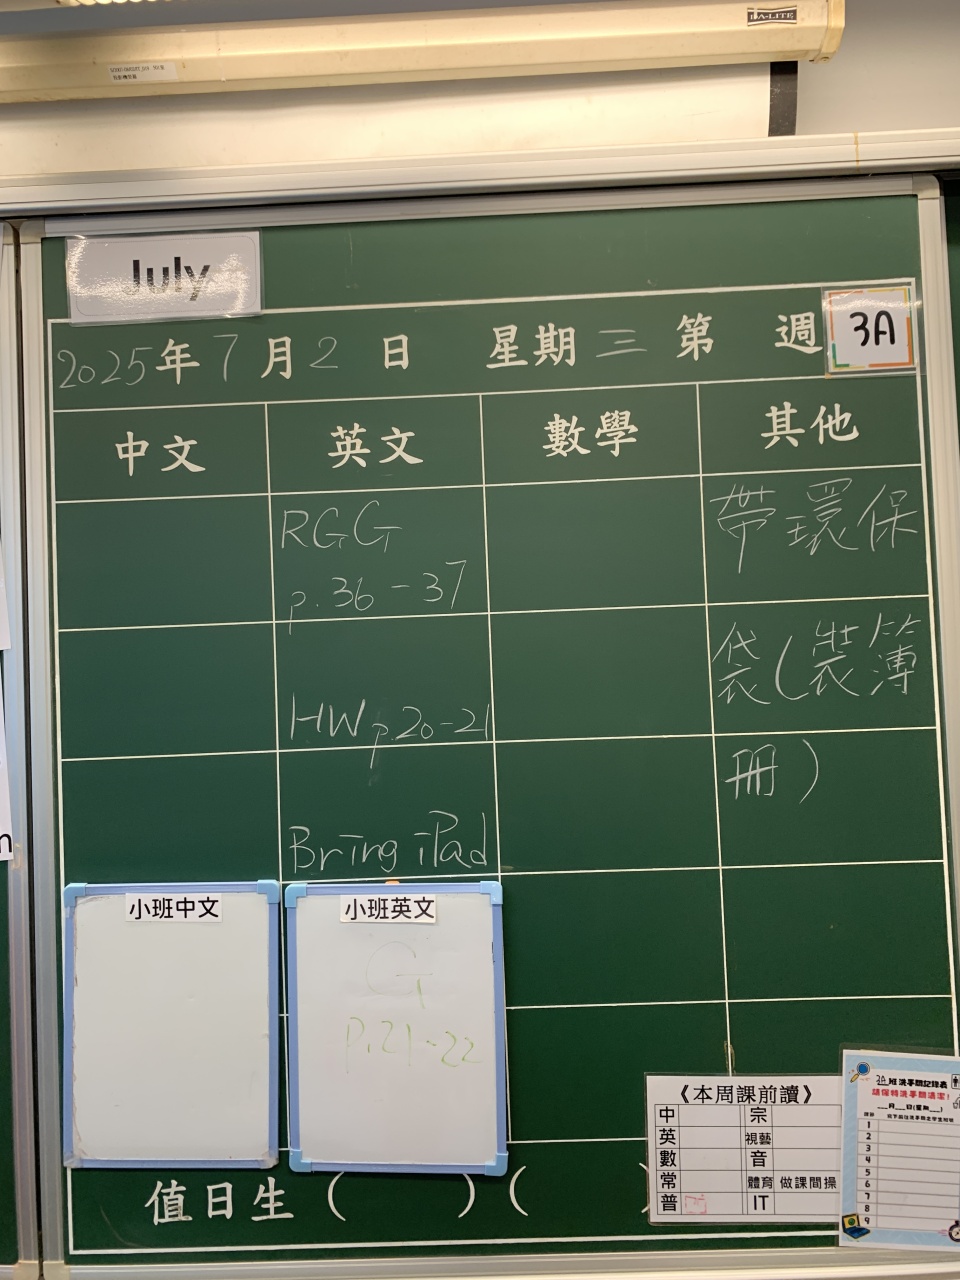 DA-LITE
July
2025年7月2日 星期三 第 週 3A
中文 英文 數學 其他
RGG
p.36-37
HW p.20-21
Bring iPad
帶環保
袋(裝簿
冊)
小班中文
小班英文
G
p.21-22
《本周課前讀》
中 宗
英 視藝
數 音
常 體育 做課間操
普 IT
3A班洗手間記錄表
請保持洗手間清潔!
月 日(星期 )
1
2
3
4
5
6
7
8
9
值日生 ( ) ( )